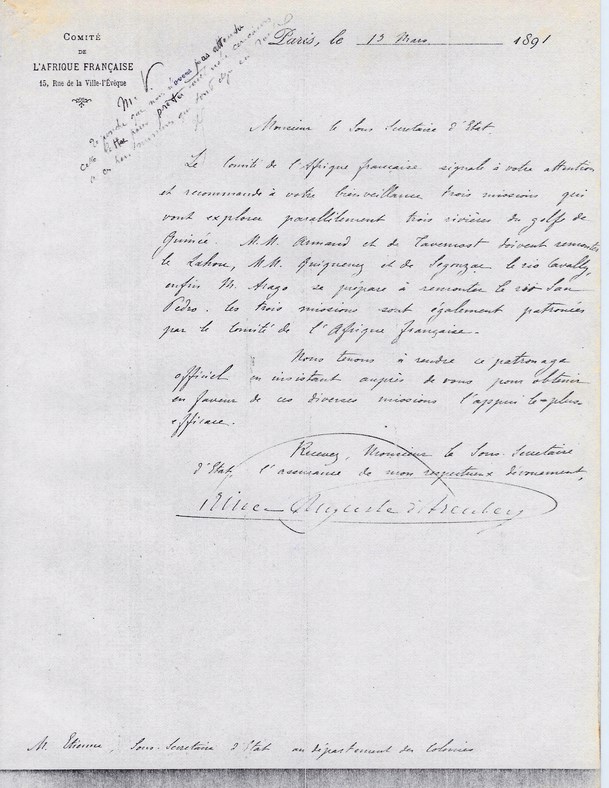 COMITÉ
DE
L'AFRIQUE FRANÇAISE
15, Rue de la Ville-l'Evêque
Paris, le 13 Mars 1891
M. V.
Répondre que nous n'avons pas attendu
cette lettre pour prêter tout notre concours
à ces trois missions qui sont déjà en
Monsieur le Sous Secrétaire d'Etat.
Le Comité de l'Afrique française signale à votre attention
et recommande à votre bienveillance trois missions qui
vont explorer parallèlement trois rivières du golfe de
Guinée. M.M. Armand et de Tavernost doivent remonter
le Lahou, MM. Quiquerez et de Segonzac le rio Cavally,
enfin M. Arago se prépare à remonter le rio San
Pedro. Les trois missions sont également patronées
par le Comité de l'Afrique française.
Nous tenons à rendre ce patronage
officiel en insistant auprès de vous pour obtenir
en faveur de ces diverses missions l'appui le plus
efficace.
Recevez, Monsieur le Sous-Secrétaire
d'Etat, l'assurance de mon respectueux dévouement,
Prince Auguste d'Arenberg
M. Etienne, Sous-Secrétaire d'Etat au département des Colonies